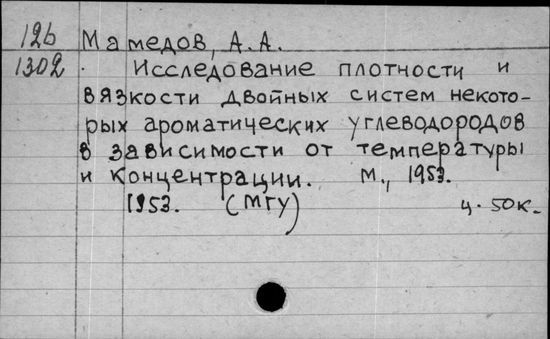 126 Мамедов, А.А.
1302 Исследование плотности и
вязкости двойных систем некото-
рых ароматических углеводородов
в зависимости от температуры
и концентрации. М., 1953.
1953. (МГУ) ц. 50к.